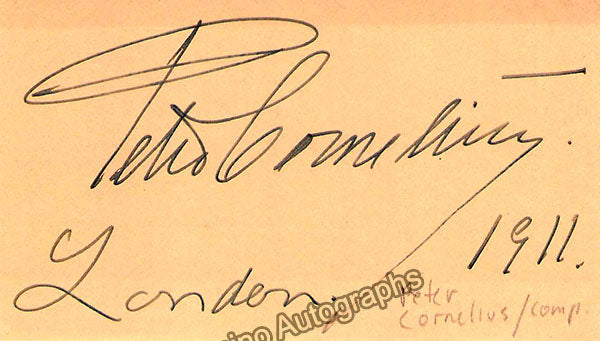 Peter Cornelius.
London. 1911.
Peter
Cornelius/comp.
ino Autographs